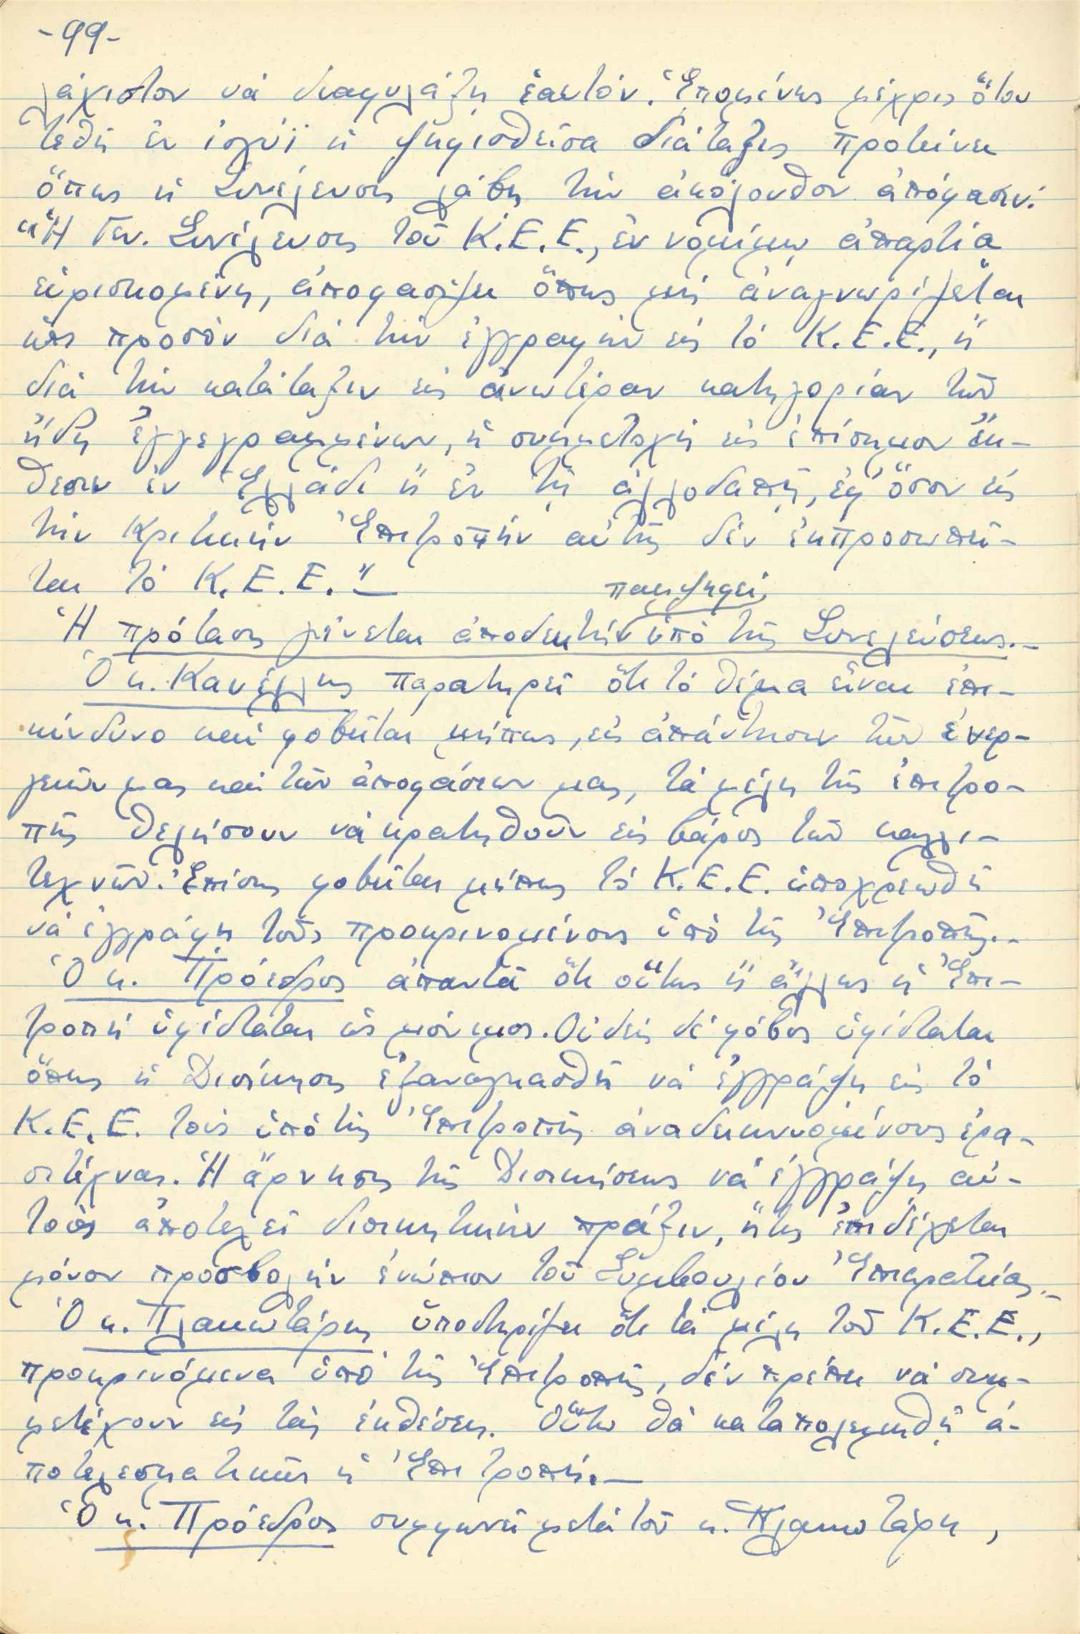 -99-
λάχιστον νά διαφυλάξῃ ἑαυτόν. Ἑπομένως μέχρις ὅτου
τεθῇ ἐν ἰσχύϊ ἡ ψηφισθεῖσα διάταξις προτείνει
ὅπως ἡ Συνέλευσις λάβῃ τήν ἀκόλουθον ἀπόφασιν:
"Ἡ Γεν. Συνέλευσις τοῦ Κ.Ε.Ε., ἐν νομίμῳ ἀπαρτίᾳ
εὑρισκομένη, ἀποφασίζει ὅπως μή ἀναγνωρίζεται
ὡς προσόν διά τήν ἐγγραφήν εἰς τό Κ.Ε.Ε., ἤ
διά τήν κατάταξιν εἰς ἀνωτέραν κατηγορίαν τῶν
ἤδη ἐγγεγραμμένων, ἡ συμμετοχή εἰς ἐπίσημον ἔκ-
θεσιν ἐν Ἑλλάδι ἤ ἐν τῇ ἀλλοδαπῇ, ἐφ' ὅσον εἰς
τήν Κριτικήν Ἐπιτροπήν αὐτῆς δέν ἐκπροσωπεῖ-
ται τό Κ.Ε.Ε."—
παμψηφεί
Ἡ πρότασις γίνεται ἀποδεκτή ὑπό τῆς Συνελεύσεως.-
Ὁ κ. Κανέλλης παρατηρεῖ ὅτι τό θέμα εἶναι ἐπι-
κίνδυνο καί φοβεῖται μήπως, εἰς ἀπάντησιν τῶν ἐνερ-
γειῶν μας καί τῶν ἀποφάσεών μας, τά μέλη τῆς ἐπιτρο-
πῆς θελήσουν νά κρατηθοῦν εἰς βάρος τῶν καλλι-
τεχνῶν. Ἐπίσης φοβεῖται μήπως τό Κ.Ε.Ε. ὑποχρεωθῇ
νά ἐγγράψῃ τούς προκρινομένους ὑπό τῆς Ἐπιτροπῆς.-
Ὁ κ. Πρόεδρος ἀπαντᾷ ὅτι οὕτως ἤ ἄλλως ἡ Ἐπι-
τροπή ὑφίσταται ὡς μόνιμος. Οὐδείς δέ φόβος ὑφίσταται
ὅπως ἡ Διοίκησις ἐξαναγκασθῇ νά ἐγγράψῃ εἰς τό
Κ.Ε.Ε. τούς ὑπό τῆς Ἐπιτροπῆς ἀναδεικνυομένους ἐρα-
σιτέχνας. Ἡ ἄρνησις τῆς Διοικήσεως νά ἐγγράψῃ αὐ-
τούς ἀποτελεῖ διοικητικήν πρᾶξιν, ἥτις ἐπιδέχεται
μόνον προσβολήν ἐνώπιον τοῦ Συμβουλίου Ἐπικρατείας.-
Ὁ κ. Πλακωτάρης ὑποστηρίζει ὅτι τά μέλη τοῦ Κ.Ε.Ε.,
προκρινόμενα ὑπό τῆς Ἐπιτροπῆς, δέν πρέπει νά συμ-
μετέχουν εἰς τάς ἐκθέσεις. Οὕτω θά καταπολεμηθῇ ἀ-
ποτελεσματικῶς ἡ Ἐπιτροπή.—
Ὁ κ. Πρόεδρος συμφωνεῖ μετά τοῦ κ. Πλακωτάρη,